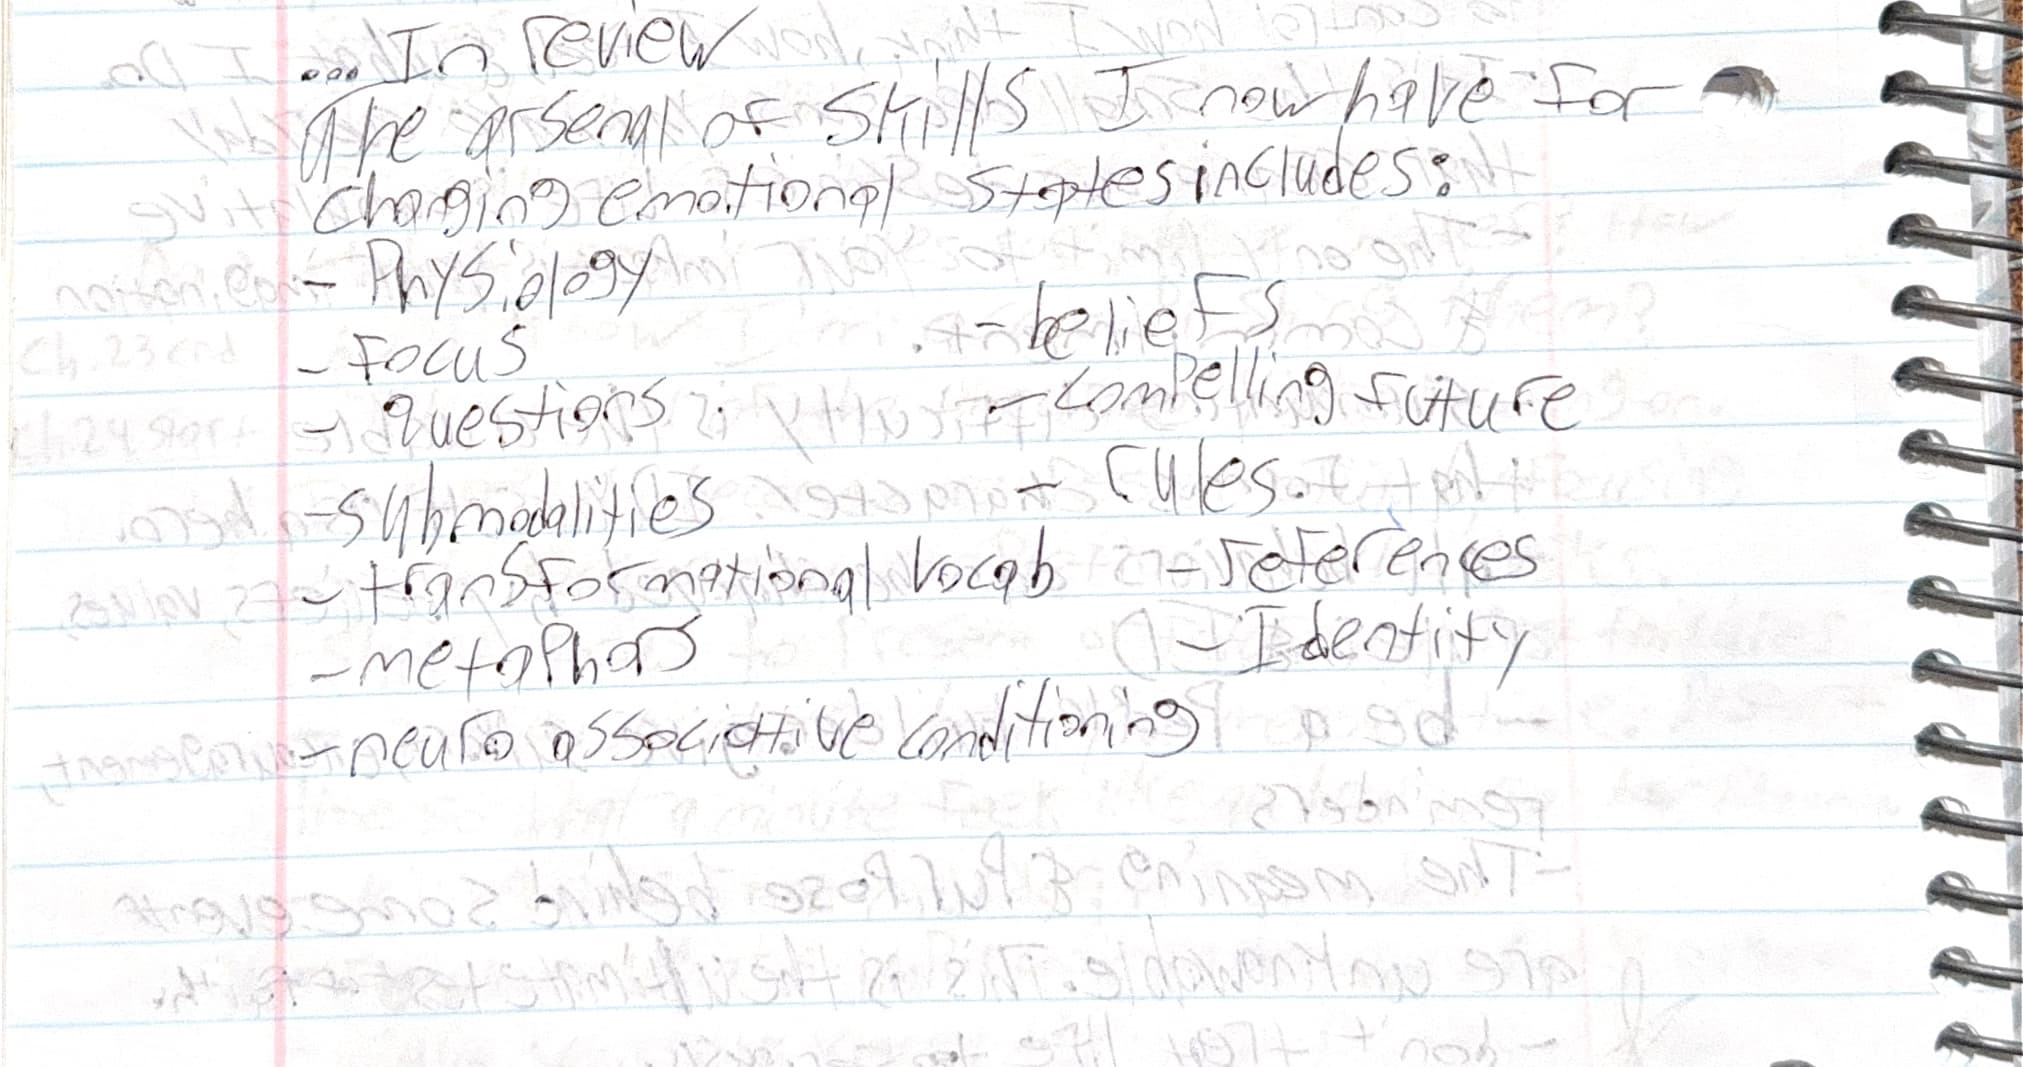 ... In review
The arsenal of skills I now have for
changing emotional states includes:
- Physiology
- Focus
- questions
- submodalities
- transformational vocab
- metaphors
- neuro associative conditioning
- beliefs
- compelling future
- rules.
- references
- Identity